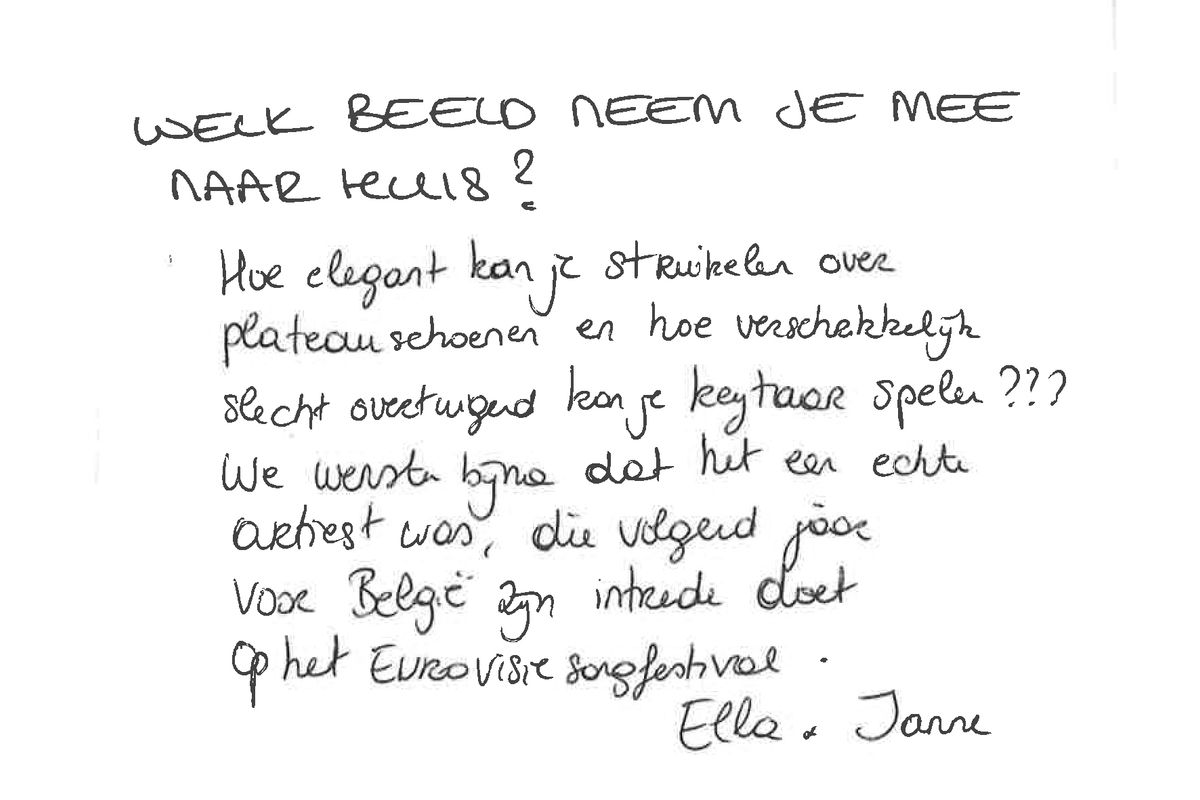 WELK BEELD NEEM JE MEE
NAAR HUIS?
Hoe elegant kan je struikelen over
plateauschoenen en hoe verschrikkelijk
slecht overtuigend kan je keytaar spelen???
We wensten bijna dat het een echte
artiest was, die volgend jaar
voor België zijn intrede doet
op het Eurovisie songfestival.
Ella & Janne